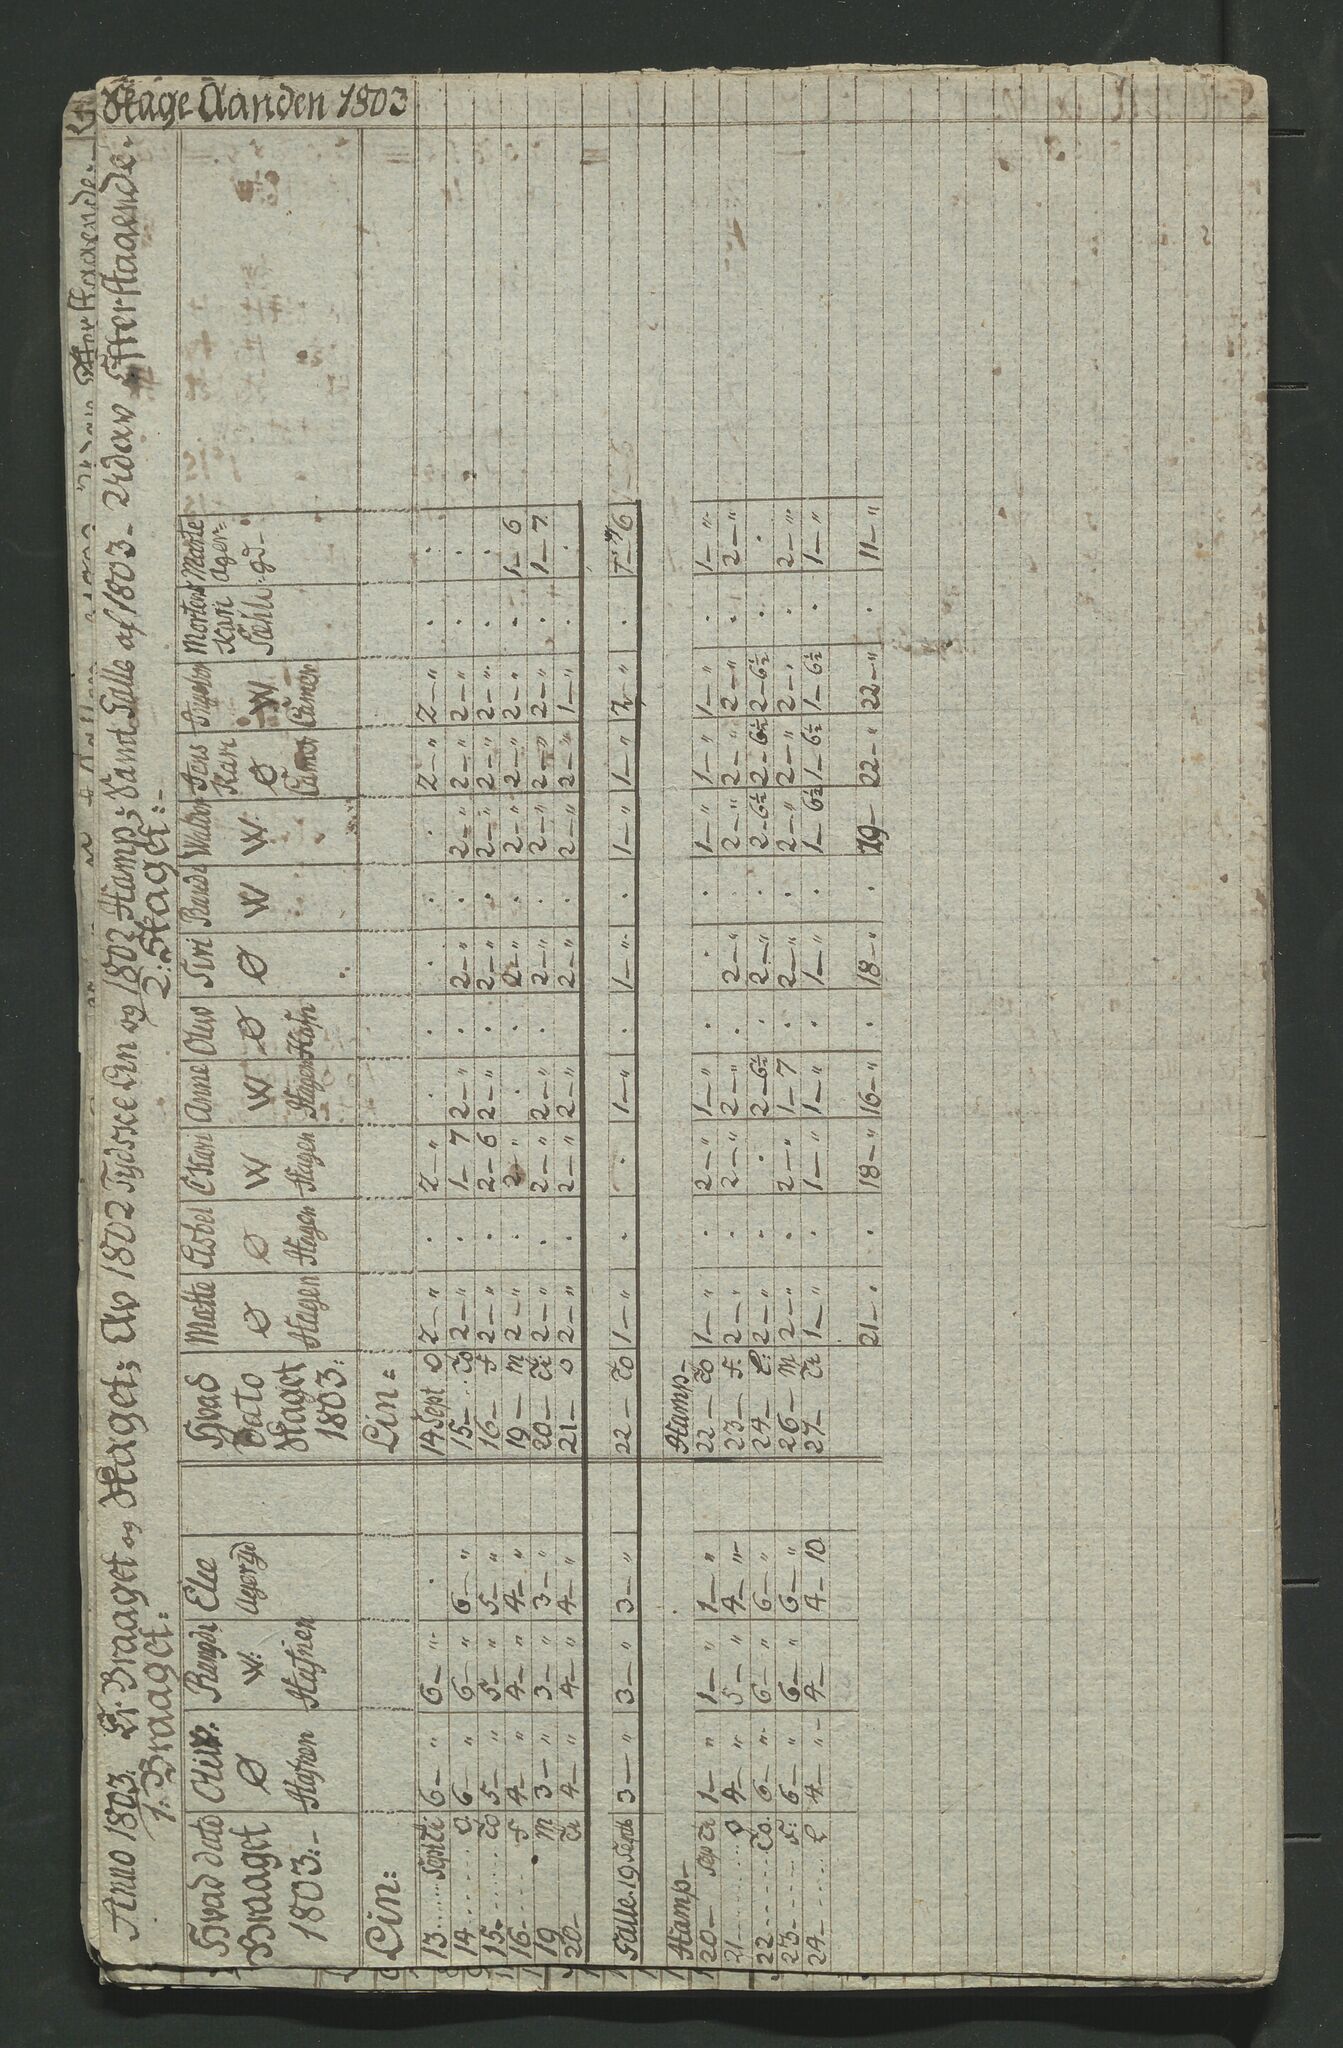 Hage Aanden 1803
Anno 1803. Er Braaget og Haget; Av 1802 Tydske Lin og 1802 Hamp; Samt Falle af 1803 - Udav Efterstaaende.
1: Braaget:
2: Haget:-
Hvad dato Braaget 1803:- | Ø Hafnen | Rangdi W. Hafnen | Else Agerqd
Lin:
13 Sept Ti: | 6—" | 6—" | .
14 O | 6—" | 6—" | 6—"
15 To | 5—" | 5—" | 5—"
16 F | 4—" | 4—" | 4—"
19 M | 3—" | 3—" | 3—"
20 Ti | 4—" | 4—" | 4—"
Falle. 19 Septb | 3—" | 3—" | 3—"
Hamp—
20— Sep Ti | 1—" | 1—" | 1—"
21 O | 4—" | 5—" | 4—"
22 To. | 6—" | 6—" | 6—"
23 F: | 6—" | 6—" | 6—"
24 L | 4—" | 4— | 4—10
Hvad Dato Haget 1803: | Matte Ø Hagen | Lisbet Ø Hagen | C Kari W Hagen | Anne W Hagen | Oluv Ø Hafn | Siri Ø | Randi W | Waldbor W. | Jens Kari Ø Camer | Ingebor W Camer | Mortens Kari | Marte Ager= gd—
Lin=
14 Sept O | 2—" | . | 2—" | . | . | . | . | . | 2—" | 2—" | . | .
15— To | 2—" | . | 1—7 | 2—" | . | 2—" | . | 2—" | 2—" | 2—" | . | .
16— F | 2—" | . | 2—6 | 2—" | . | 2—" | . | 2—" | 2—" | 2—" | . | .
19— M | 2—" | . | 2—" | . | . | 2—" | . | 2—" | 2—" | 2—" | . | 1—6
20— Ti: | 2—" | . | 2—" | 2—" | . | 2—" | . | 2—" | 2—" | 2—" | . | 1—7
21— O | 2—" | . | 2—" | 2—" | | 2—" | . | 2—" | 2—" | 1—" | . | .
22— To | 1—" | . | . | 1—" | . | 1—" | . | 1—" | 1—" | 2—" | . | 6
Hamp—
22— To | 1—" | . | 2—" | 1—" | . | . | . | 1—" | 1—" | 1—" | . | 1—"
23— F: | 2—" | . | 2—" | 2—" | . | 2—" | . | 2—" | 2—" | 2—" | . | 2—"
24— L: | 2—" | . | . | 2—6½ | . | 2—" | . | 2—6½ | 2—6½ | 2—6½ | . | .
26— M | 2—" | . | 2—" | 1—7 | . | 2—" | . | 2—" | 2—" | 2—" | . | 2—"
27— Ti | 1—" | . | 1—" | 1—" | . | 1—" | . | 1—6½ | 1—6½ | 1—6½ | . | 1—"
21—" | . | 18—" | 16—" | . | 18—" | . | 19— | 22—" | 22—" | . | 11—"